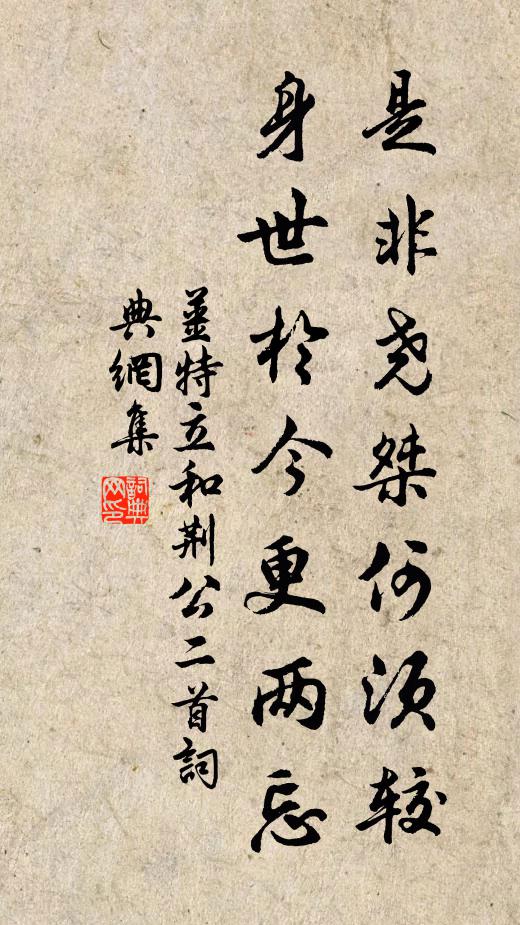 是非尧桀何须较
身世於今更两忘
姜特立和荆公二首詞
典網集
詞典网印